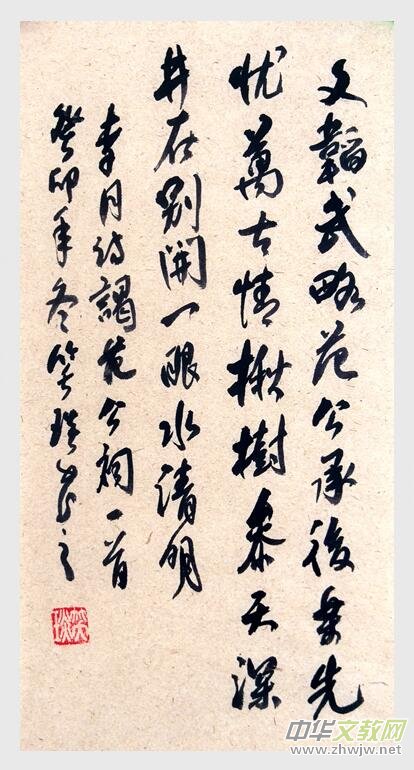 文韜武略范公承後樂先
忧萬古情楸樹參天深
井在别開一眼水清明
李月詩謁范公祠一首
癸卯年冬書之
中华文教网
www.zhwjw.net